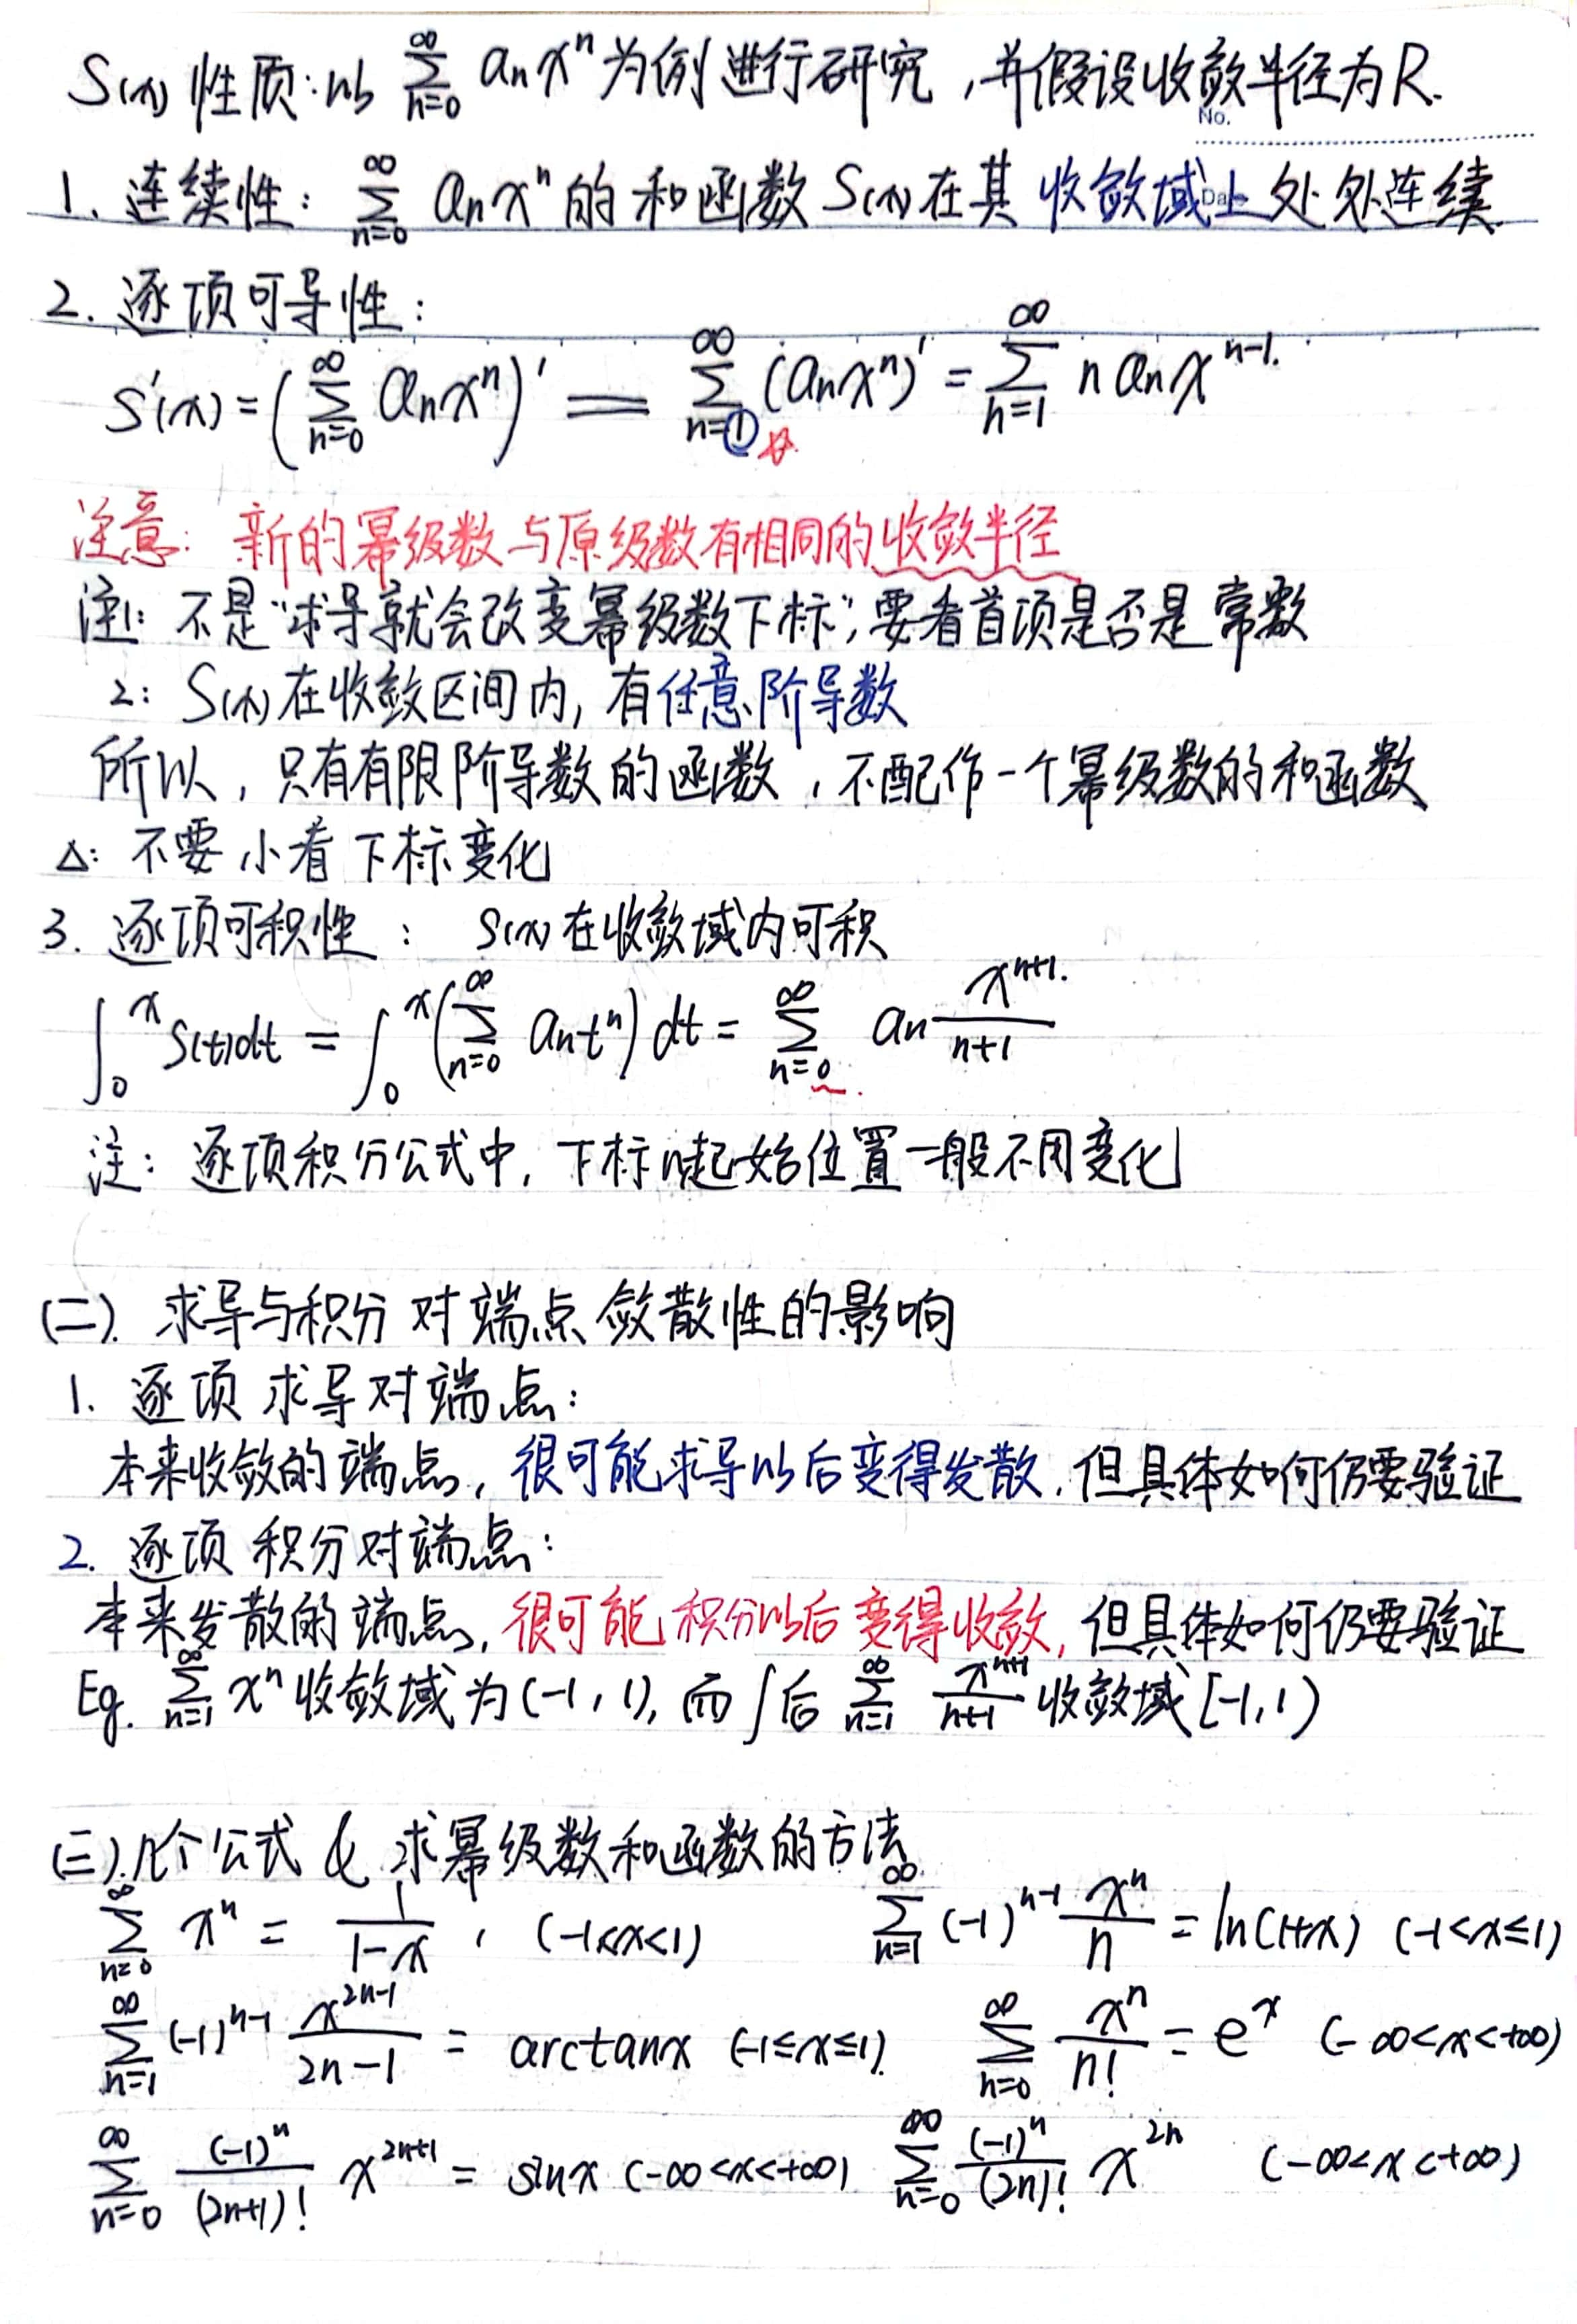 S(x)性质:以 ∑_{n=0}^{∞} aₙxⁿ为例进行研究,并假设收敛半径为R.
No.
1. 连续性: ∑_{n=0}^{∞} aₙxⁿ的和函数S(x)在其收敛域上处处连续
2. 逐项可导性:
S'(x)=(∑_{n=0}^{∞} aₙxⁿ)' = ∑_{n=①}^{∞} (aₙxⁿ)' = ∑_{n=1}^{∞} n aₙx^{n-1}.
注意: 新的幂级数与原级数有相同的收敛半径
注1: 不是“求导就会改变幂级数下标”;要看首项是否是常数
2: S(x)在收敛区间内,有任意阶导数
所以,只有有限阶导数的函数,不配作一个幂级数的和函数
△: 不要小看下标变化
3. 逐项可积性: S(x)在收敛域内可积
∫₀ˣ S(t)dt = ∫₀ˣ (∑_{n=0}^{∞} aₙtⁿ) dt = ∑_{n=0}^{∞} aₙ x^{n+1}/(n+1)
注: 逐项积分公式中,下标n起始位置一般不用变化
(二). 求导与积分对端点敛散性的影响
1. 逐项求导对端点:
本来收敛的端点,很可能求导以后变得发散.但具体如何仍要验证
2. 逐项积分对端点:
本来发散的端点,很可能积分以后变得收敛,但具体如何仍要验证
Eg. ∑_{n=1}^{∞} xⁿ收敛域为(-1,1),而∫后 ∑_{n=1}^{∞} x^{n+1}/(n+1) 收敛域[-1,1)
(三).几个公式 & 求幂级数和函数的方法
∑_{n=0}^{∞} xⁿ = 1/(1-x), (-1<x<1) ∑_{n=1}^{∞} (-1)^{n-1} xⁿ/n = ln(1+x) (-1<x≤1)
∑_{n=1}^{∞} (-1)^{n-1} x^{2n-1}/(2n-1) = arctanx (-1≤x≤1). ∑_{n=0}^{∞} xⁿ/n! = eˣ (-∞<x<+∞)
∑_{n=0}^{∞} (-1)ⁿ/(2n+1)! x^{2n+1} = sinx (-∞<x<+∞) ∑_{n=0}^{∞} (-1)ⁿ/(2n)! x^{2n} (-∞<x<+∞)